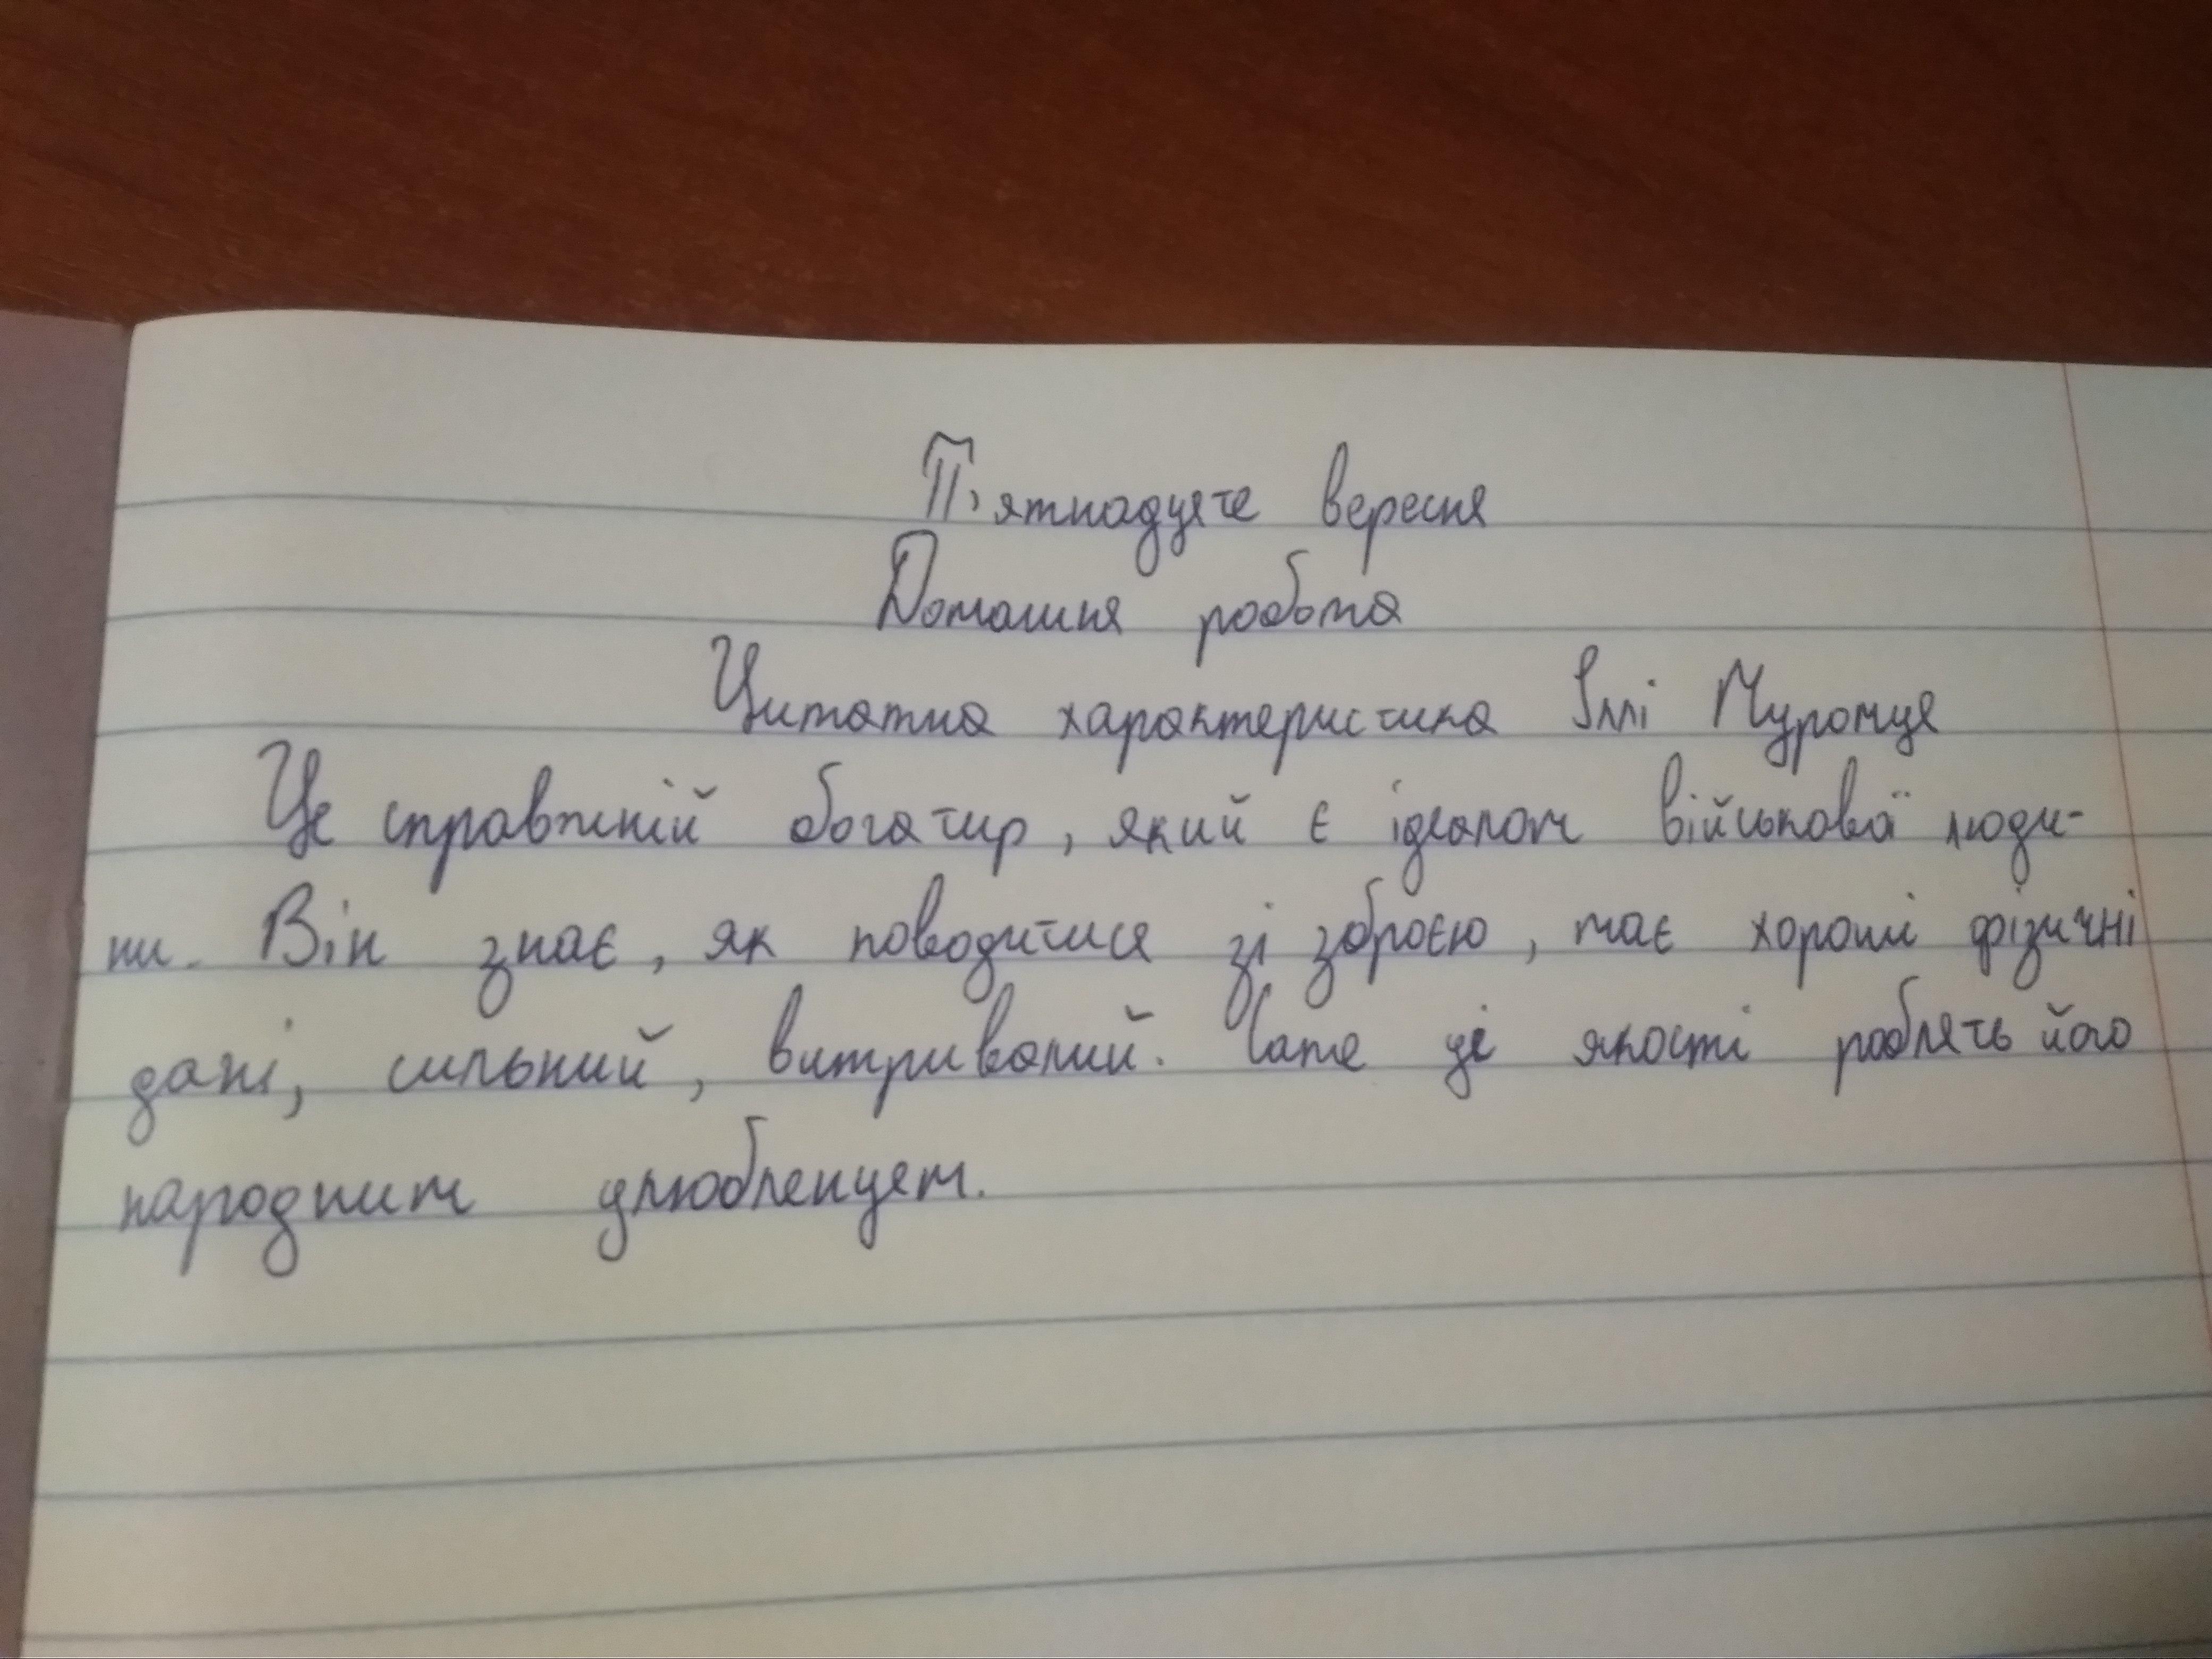 П'ятнадцяте вересня
Домашня робота
Цитатна характеристика Іллі Муромця
Це справжній богатир, який є ідеалом військової люди-
ни. Він знає, як поводитися зі зброєю, має хороші фізичні
дані, сильний, витривалий. Саме ці якості роблять його
народним улюбленцем.